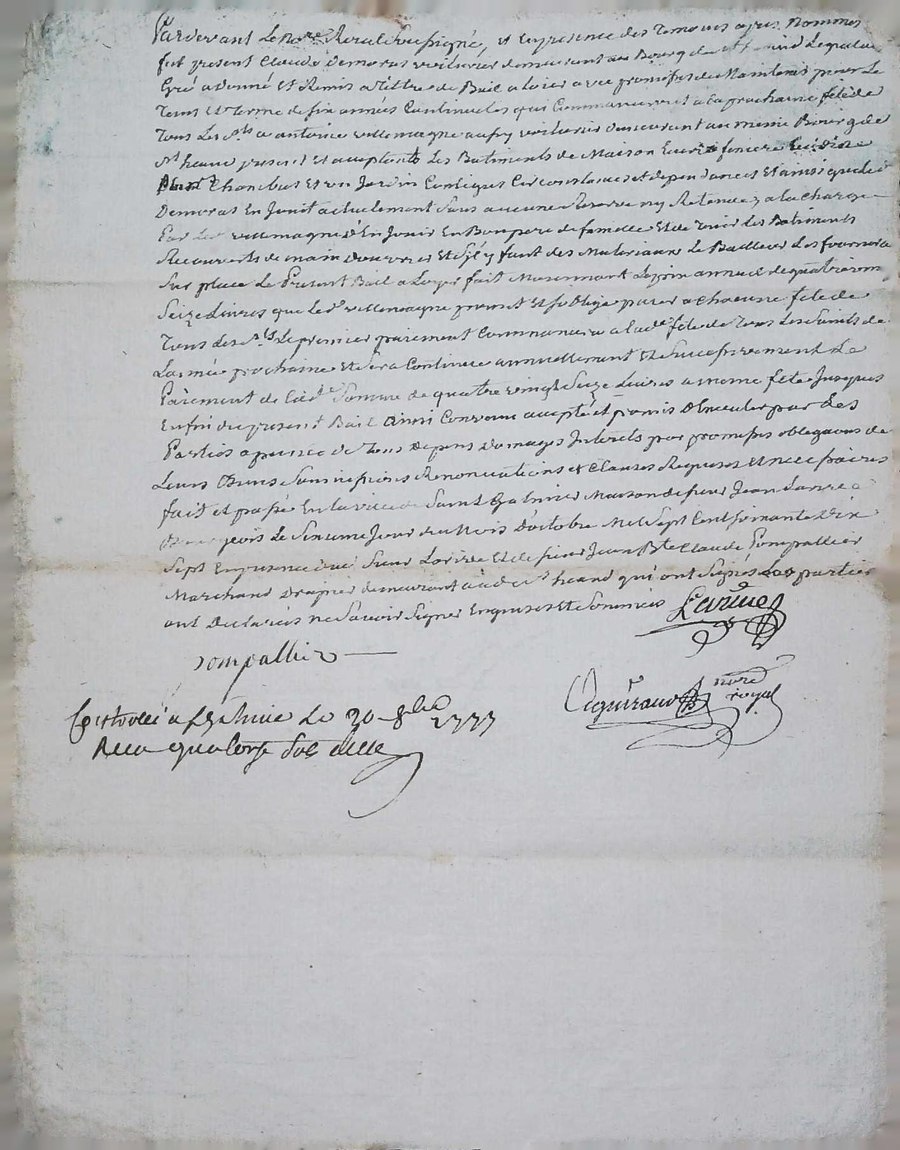 Pardevant Le No.re Royal soussigné, et En presence des Temoins apres Nommés
fut present Claude Demoras voiturier demeurant au Bourg de st heand Lequel de
Gré a donné et Remis a Tittre de Bail a loier avec promesse de Maintenir pour Le
Tems et Terme de six années Continuelles qui Commanceront a la prochaine fête de
Tous Les sts a antoine villemagne aussy voiturier demeurant au meme Bourg de
st heand present et acceptants Les Batiments de Maison Ecurie feniere
Chambres et un Jardin Contigus Circonstances et dependances Et ainsi que led
Demoras En Jouit actuelement sans aucune Reserve ny Retenue, a la Charge
Par Led villemagne d'En Jouir En Bon pere de famille Et de tenir Les Batiments
Recouverts de main d'ouvres Et s'il y faut des Materiaux Le Bailleur Les fournira
sur place Le Present Bail a Loyer fait Moiennant Le prix annuel de quatre vin
Seize Livres que Led villemagne promet Et s'oblige paier a Chacune fête de
Tous Les sts Le premier paiement Commancera a lade fête de Tous Les Saints de
L'année prochaine Et sera Continué annuellement Et Successivement Le
Paiement de lade Somme de quatre vingt Seize Livres a meme fête Jusques
En fin du present Bail ainsi Convenu accepté et promis d'Executer par Les
Parties a peines de Tous Depens Domages Interets par promesses obligations de
Leurs Biens Soumissions Renonciations et Clauses Requises Et necessaires
fait et passé En la ville de Saint Galmier Maison de sieur Jean
Bourgeois Le Sixieme Jour du Mois D'octobre Mil Sept Cent Soixante Dix
Sept En presence dud Sieur Et de sieur Jean Bte Claude Pompallier
Marchand Drapier demeurant aud st heand qui ont Signés Les parties
ont Declarés ne Savoir Signer Enquises Et Sommées
pompallier
nore
royal
a St Galmier Le 20 8bre 1777
Recu quatorze sols